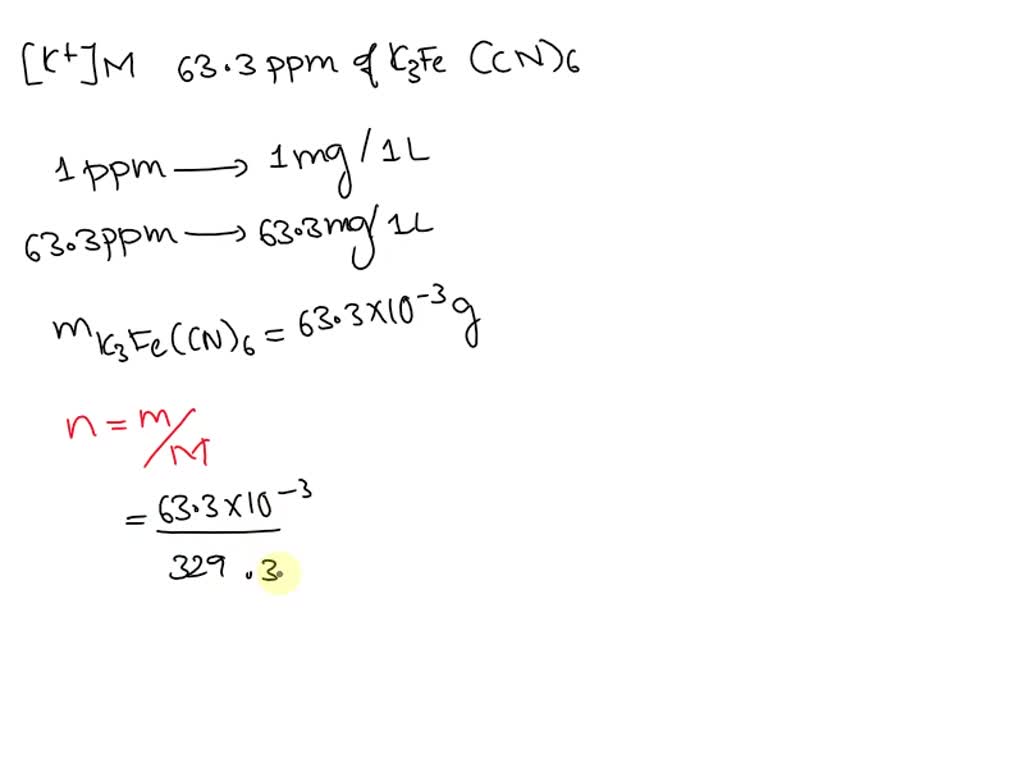 [K+]M 63.3 ppm of K3Fe (CN)6
1 ppm → 1mg/1L
63.3ppm → 63.3mg/1L
mK3Fe(CN)6 = 63.3×10-3 g
n = m/M
= 63.3×10-3
329.3